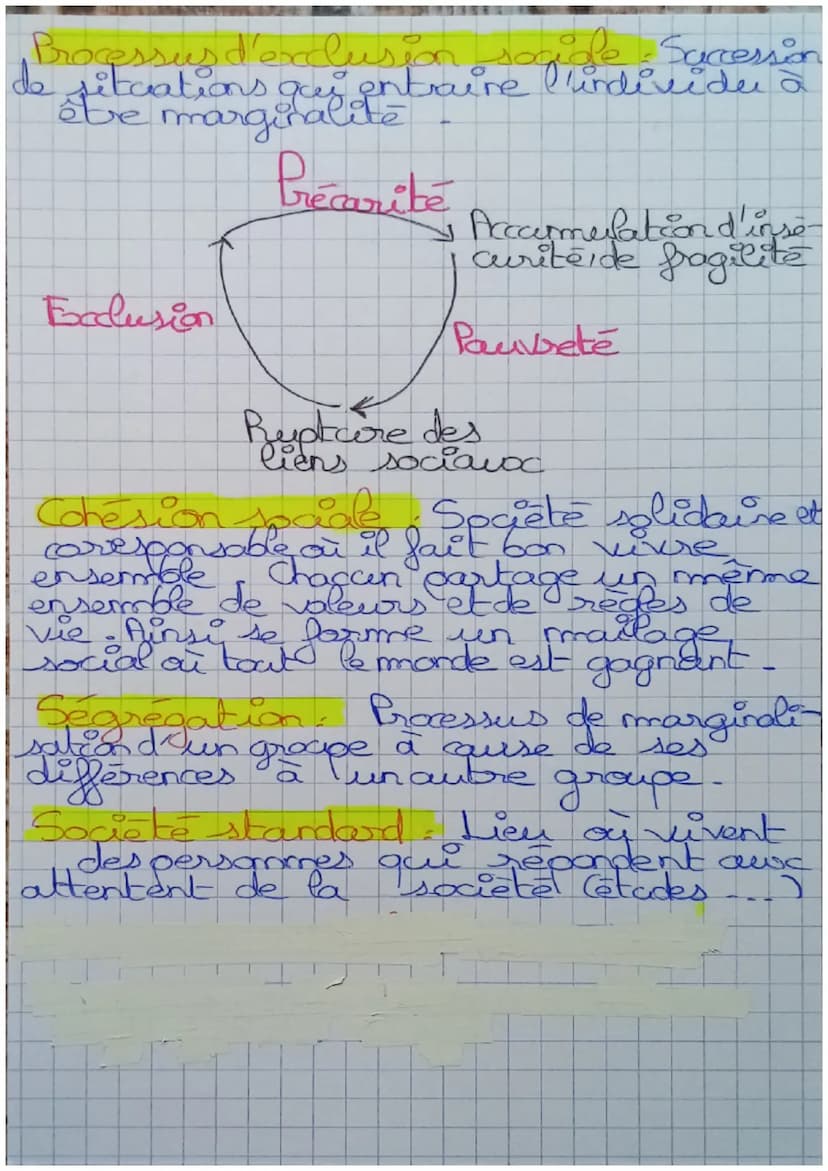 Processus d'exclusion sociale : Succession
de situations qui entraire l'individu à
être marginalité.
Précarité
Accumulation d'insé-
curité, de fragilité
Exclusion
Pauvreté
Rupture des
liens sociaux
Cohésion sociale : Société solidaire et
coresponsable où il fait bon vivre
ensemble. Chacun partage un même
ensemble de valeurs et de règles de
vie. Ainsi se forme un maillage
social où tout le monde est gagnant.
Ségrégation : Processus de marginali-
sation d'un groupe à cause de ses
différences à un autre groupe.
Société standard : Lieu où vivent
des personnes qui répondent aux
attentent de la société (études ...)